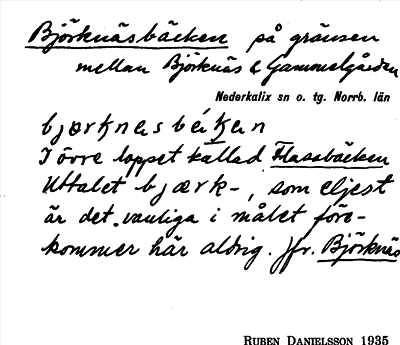 Björknäsbäcken på gränsen
mellan Björknäs & Gammelgården
Nederkalix sn o. tg. Norrb. län
bjærknesbékan
I övre loppet kallad Flasabäcken
Uttalet bjærk-, som eljest
är det vanliga i målet före-
kommer här aldrig. Jfr. Björknäs
RUBEN DANIELSSON 1935